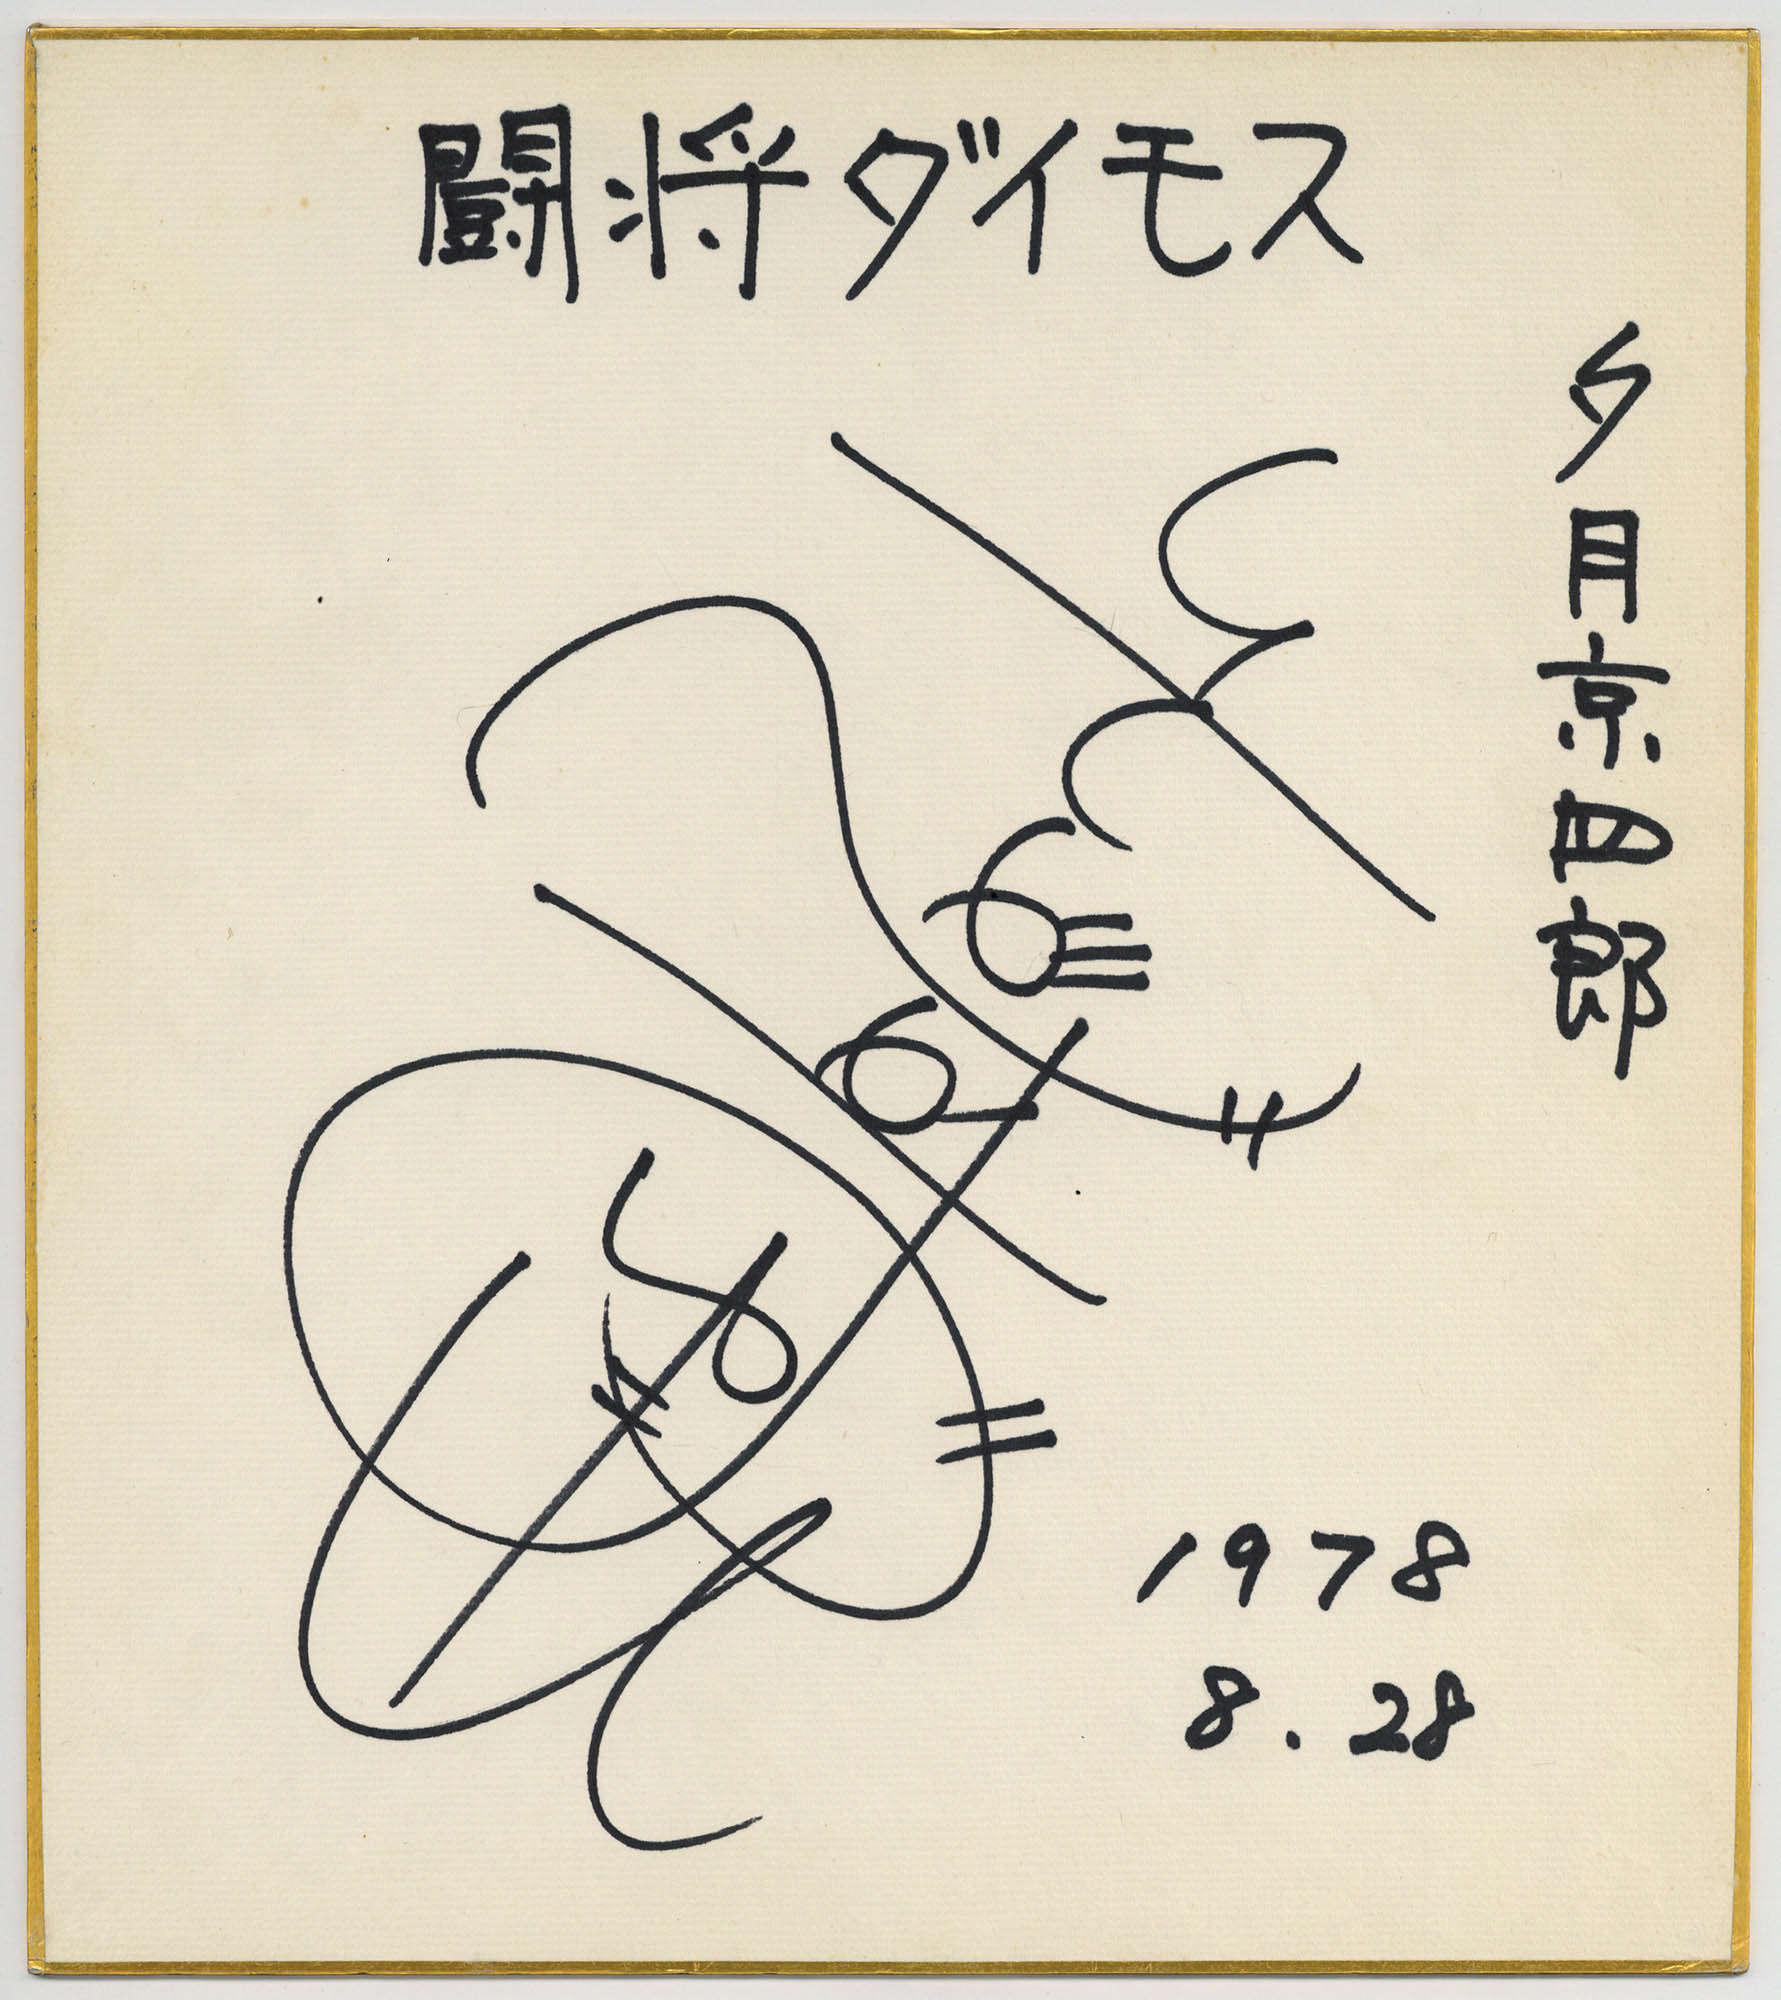 闘将ダイモス
夕月京四郎
1978
8.28